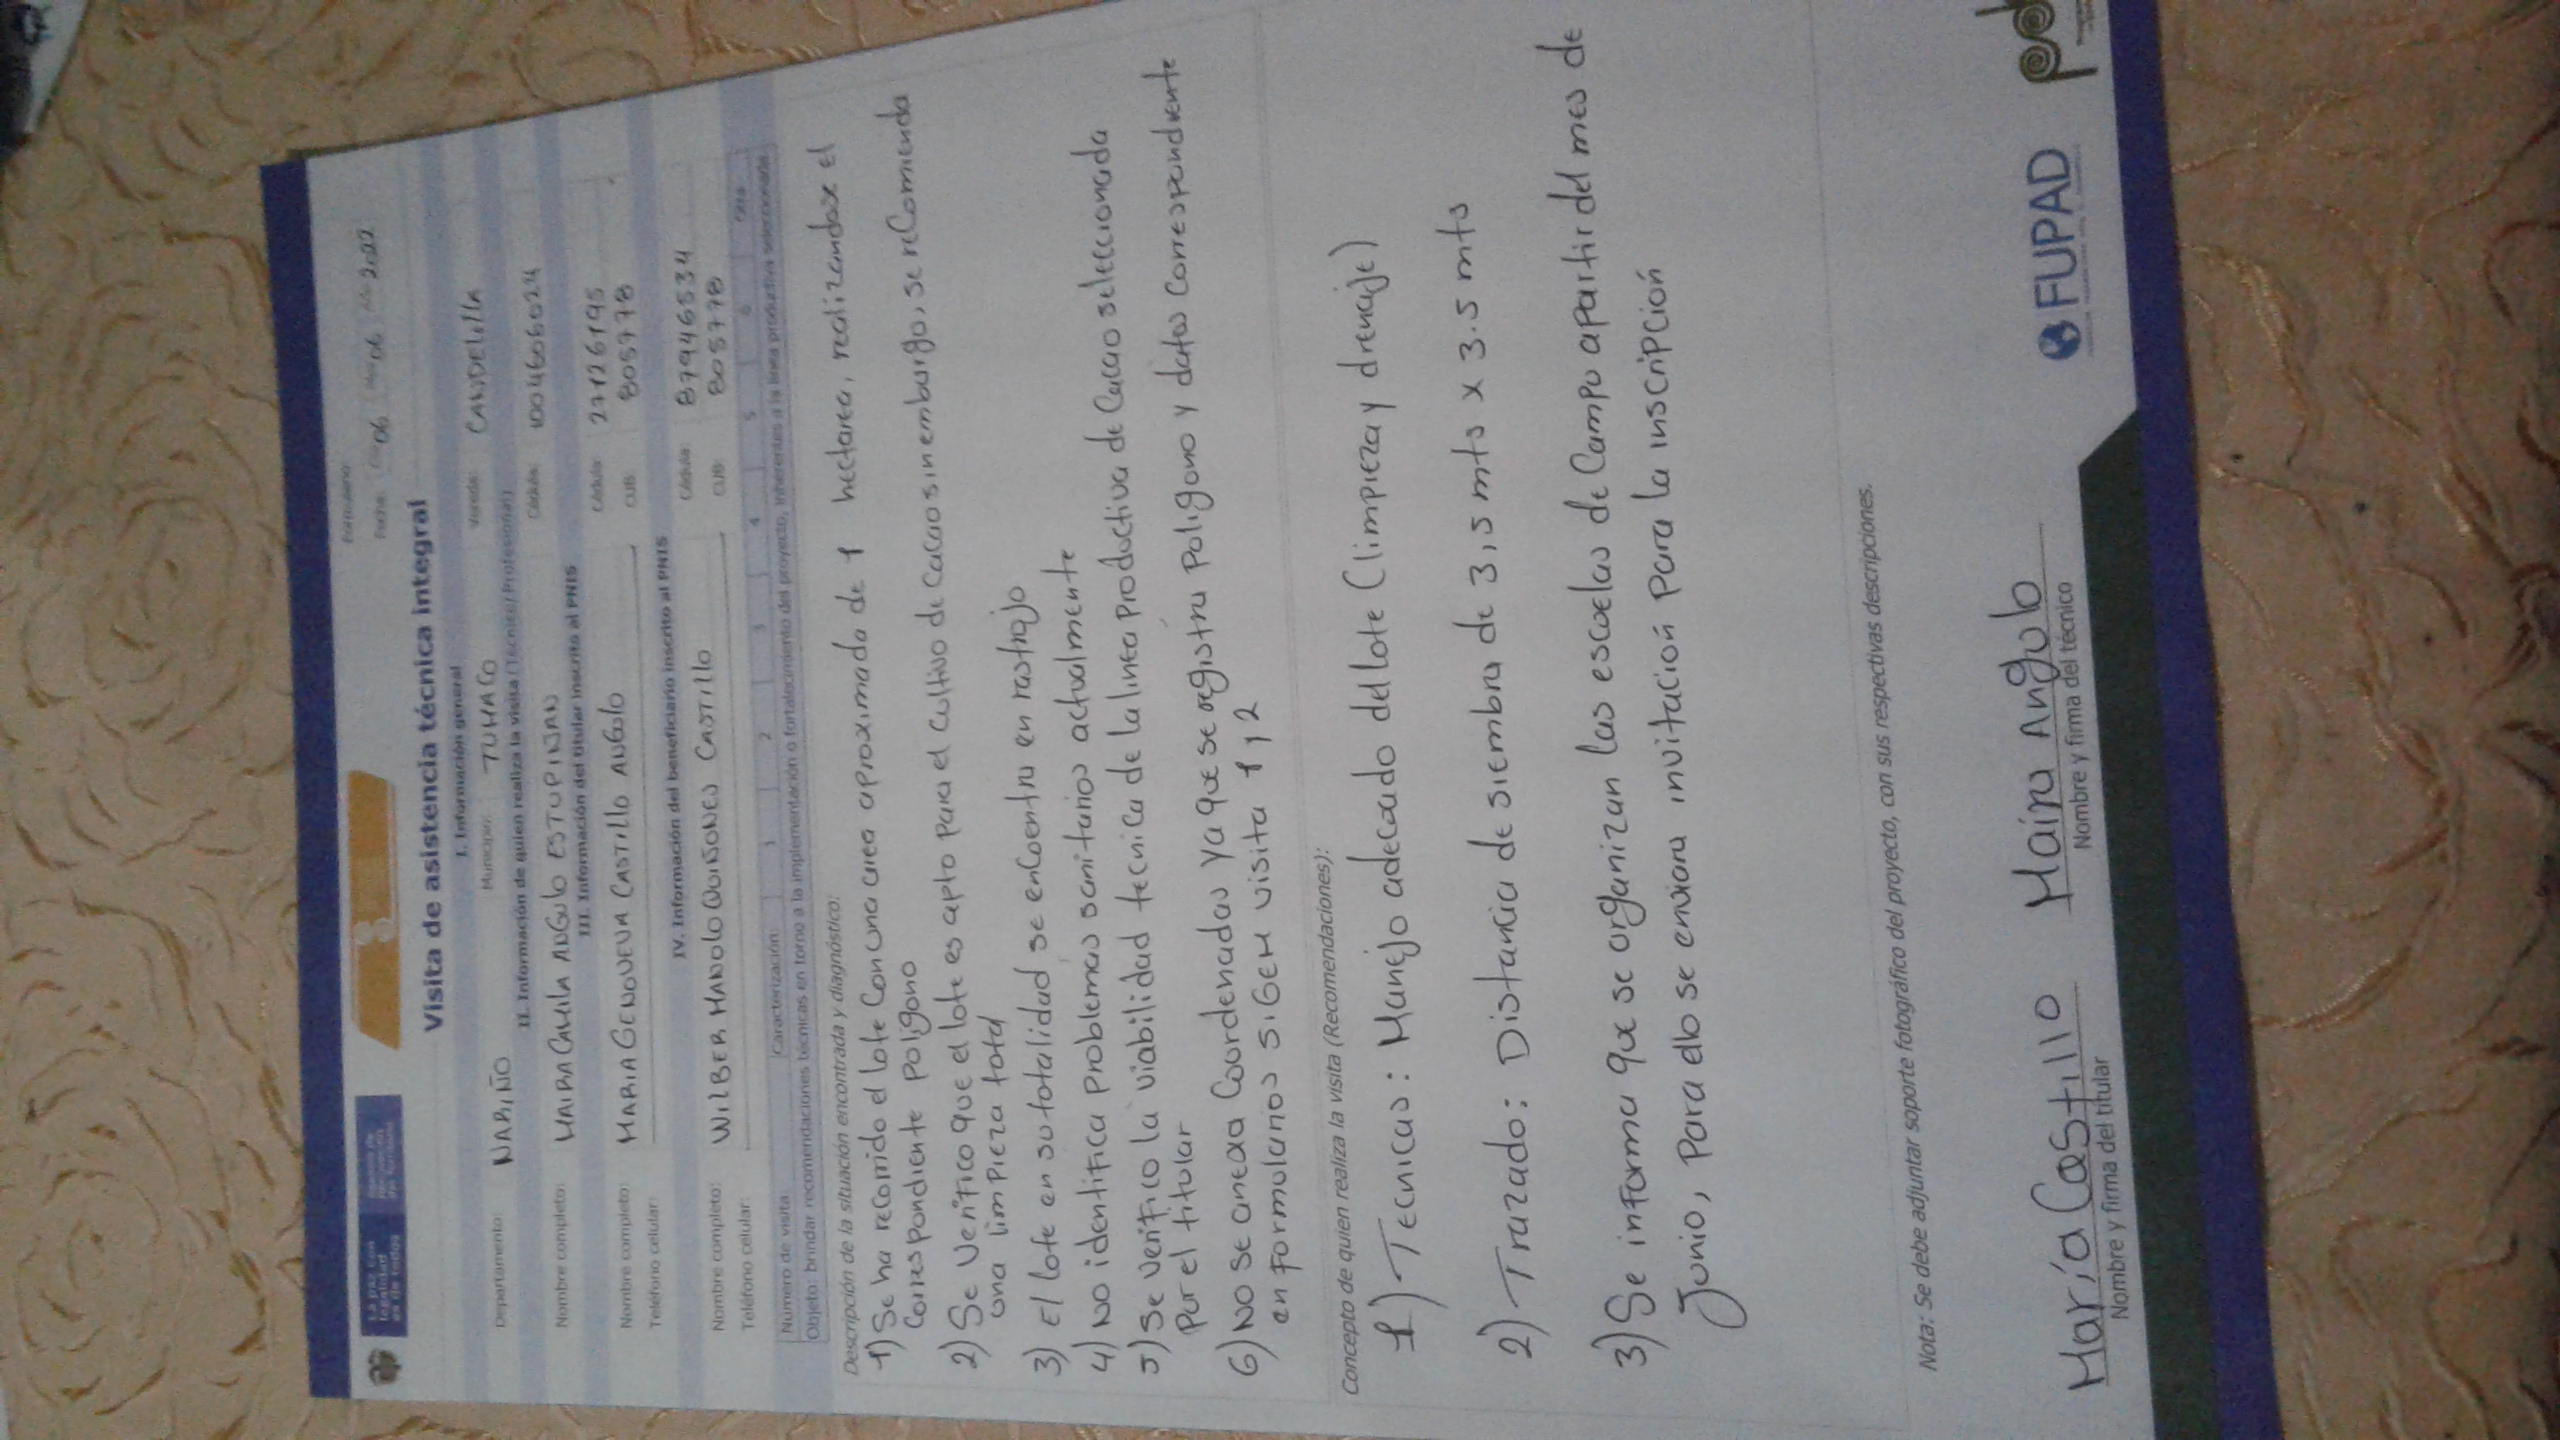 La paz con
legalidad
es de todos
Formulario:
Fecha: Día 06 Mes 06 Año 2022
Visita de asistencia técnica integral
I. Información general
Departamento: NARIÑO Municipio: TUMACO Vereda: CANDELILLA
II. Información de quien realiza la visita (Técnico/Profesional)
Nombre completo: MAIRA CAMILA ANGULO ESTUPIÑAN Cédula: 1004606024
III. Información del titular inscrito al PNIS
Nombre completo: MARIA GENOVEVA CASTILLO ANGULO Cédula: 27126195
Teléfono celular: CUB: 805778
IV. Información del beneficiario inscrito al PNIS
Nombre completo: WILBER MANOLO QUIÑONES CASTILLO Cédula: 87946534
Teléfono celular: CUB: 805778
Número de visita Caracterización: 1 2 3 4 5 6 Otra
Objeto: brindar recomendaciones técnicas en torno a la implementación o fortalecimiento del proyecto, inherentes a la línea productiva seleccionada
Descripción de la situación encontrada y diagnóstico:
1) Se ha recorrido el lote con una area aproximada de 1 hectarea, realizandose el
correspondiente poligono
2) Se verifico que el lote es apto para el cultivo de cacao sin embargo, se recomienda
una limpieza total
3) El lote en su totalidad se encuentra en rastrojo
4) No identifica problemas sanitarios actualmente
5) Se verifico la viabilidad tecnica de la linea productiva de cacao seleccionada
por el titular
6) No se anexa coordenadas ya que se registra poligono y datos correspondiente
en formularios SIGEM visita 1 y 2
Concepto de quien realiza la visita (Recomendaciones):
1) Tecnicas: Manejo adecuado del lote (limpieza y drenaje)
2) Trazado: Distancia de siembra de 3,5 mts x 3.5 mts
3) Se informa que se organizan las escuelas de campo apartir del mes de
Junio, para ello se enviara invitación para la inscripción
Nota: Se debe adjuntar soporte fotográfico del proyecto, con sus respectivas descripciones.
María Castillo Maira Angulo
Nombre y firma del titular Nombre y firma del técnico
FUPAD